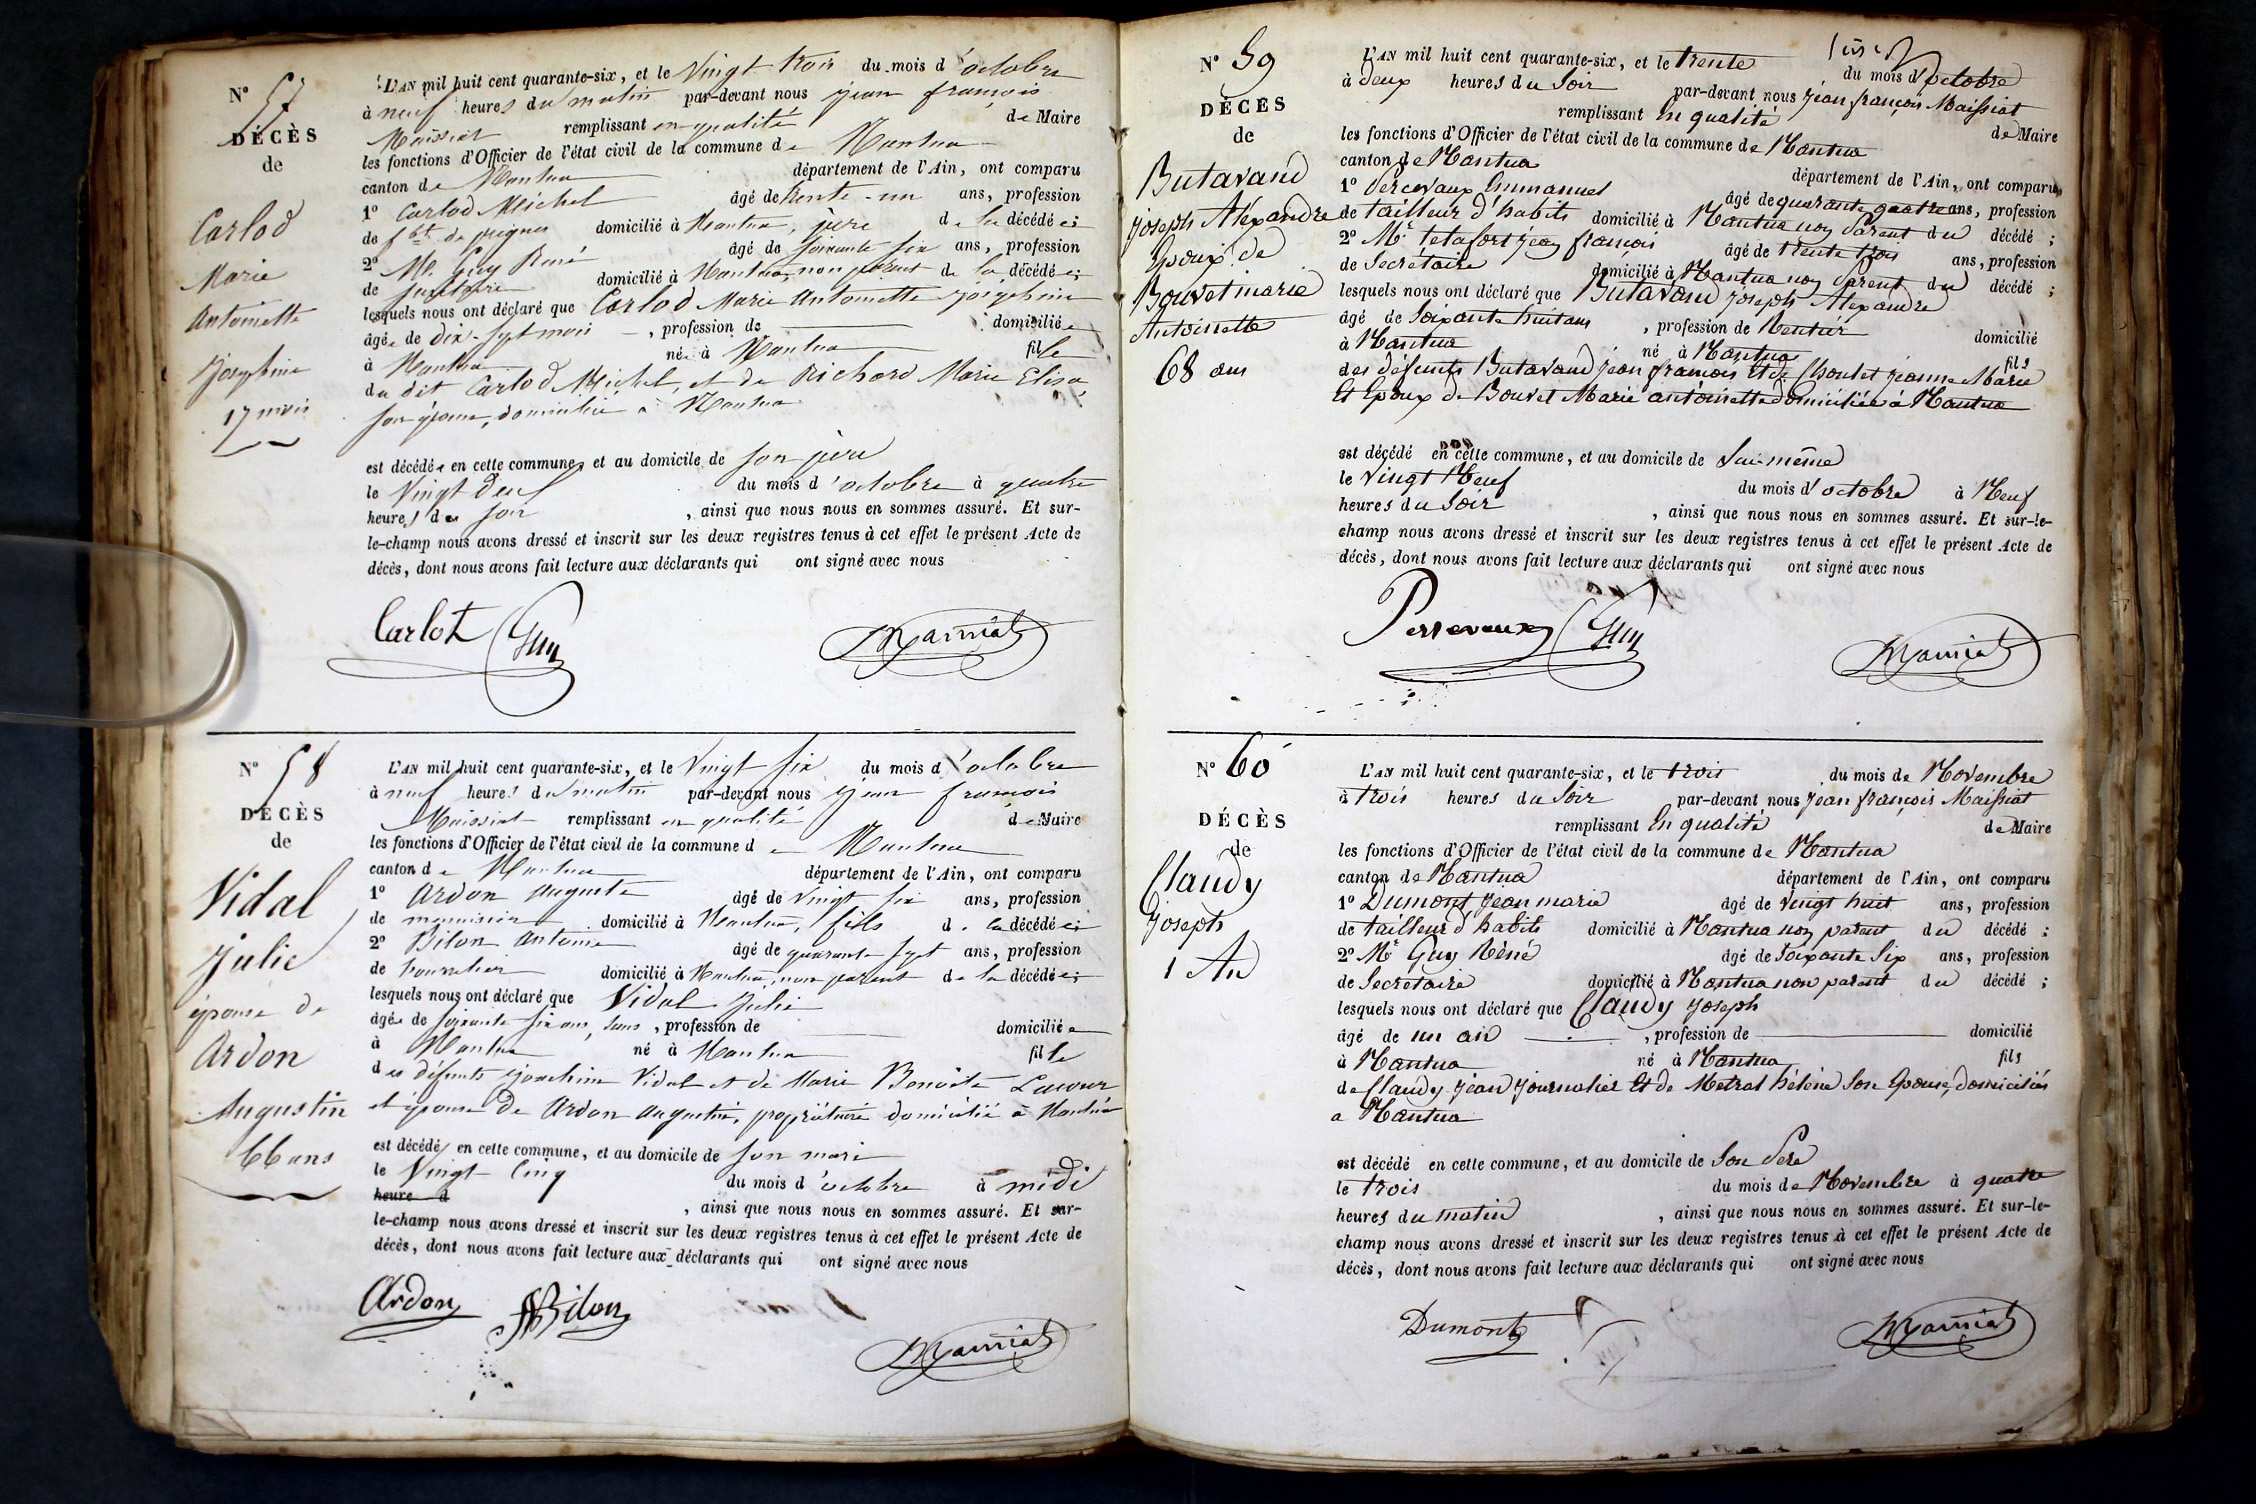 N° 57
DÉCÈS
de
Carlod
Marie
Antoinette
Josephine
17 mois
L'AN mil huit cent quarante-six, et le Vingt trois du mois d'octobre
à neuf heures du matin par-devant nous jean françois
Maissiat remplissant en qualité de Maire
les fonctions d'Officier de l'état civil de la commune de Nantua
canton de Nantua département de l'Ain, ont comparu
1° Carlod Michel âgé de trente-un ans, profession
de fbt de peignes domicilié à Nantua, père de la décédée;
2° Mr. Guy René âgé de soixante six ans, profession
de secrétaire domicilié à Nantua, non parent de la décédée;
lesquels nous ont déclaré que Carlod Marie Antoinette Josephine
âgée de dix-sept mois, profession de domiciliée
à Nantua née à Nantua fille
du dit Carlod Michel, et de Richard Marie Elisa,
son épouse, domiciliés à Nantua
est décédée en cette commune, et au domicile de son père
le Vingt deux du mois d'octobre à quatre
heures du soir, ainsi que nous nous en sommes assuré. Et sur-
le-champ nous avons dressé et inscrit sur les deux registres tenus à cet effet le présent Acte de
décès, dont nous avons fait lecture aux déclarants qui ont signé avec nous
Carlod Guy Maissiat
N° 58
DÉCÈS
de
Vidal
Julie
épouse de
Ardon
Augustin
66 ans
L'AN mil huit cent quarante-six, et le Vingt six du mois d'octobre
à neuf heures du matin par-devant nous jean françois
Maissiat remplissant en qualité de Maire
les fonctions d'Officier de l'état civil de la commune de Nantua
canton de Nantua département de l'Ain, ont comparu
1° Ardon Auguste âgé de vingt six ans, profession
de menuisier domicilié à Nantua, fils de la décédée;
2° Bilon Antoine âgé de quarante sept ans, profession
de bourrelier domicilié à Nantua, non parent de la décédée;
lesquels nous ont déclaré que Vidal Julie
âgée de soixante six ans, sans, profession de domiciliée
à Nantua née à Nantua fille
des défunts Joachim Vidal et de Marie Benoite Lacour
et épouse de Ardon Augustin, propriétaire domicilié à Nantua
est décédée en cette commune, et au domicile de son mari
le Vingt Cinq du mois d'octobre à midi
heure d, ainsi que nous nous en sommes assuré. Et sur-
le-champ nous avons dressé et inscrit sur les deux registres tenus à cet effet le présent Acte de
décès, dont nous avons fait lecture aux déclarants qui ont signé avec nous
Ardon ABilon Maissiat
N° 59
DÉCÈS
de
Butavand
Joseph Alexandre
Epoux de
Bouvet marie
Antoinette
68 ans
L'AN mil huit cent quarante-six, et le trente du mois d'octobre
à deux heures du Soir par-devant nous jean françois Maissiat
remplissant En qualité de Maire
les fonctions d'Officier de l'état civil de la commune de Nantua
canton de Nantua département de l'Ain, ont comparu
1° Percevaux Emmanuel âgé de quarante quatre ans, profession
de tailleur d'habits domicilié à Nantua non Parent du décédé;
2° Mr tetafort jean françois âgé de trente trois ans, profession
de Secrétaire domicilié à Nantua non Parent du décédé;
lesquels nous ont déclaré que Butavand joseph Alexandre
âgé de Soixante huit ans, profession de Rentier domicilié
à Nantua né à Nantua fils
des défunts Butavand jean françois Et de Choulet jeanne Marie
Et Epoux de Bouvet Marie antoinette domiciliée à Nantua
est décédé en cette commune, et au domicile de Lui-même
le Vingt Neuf du mois d'octobre à Neuf
heures du Soir, ainsi que nous nous en sommes assuré. Et sur-le-
champ nous avons dressé et inscrit sur les deux registres tenus à cet effet le présent Acte de
décès, dont nous avons fait lecture aux déclarants qui ont signé avec nous
Perrevaux Guy Maissiat
N° 60
DÉCÈS
de
Claudy
Joseph
1 An
L'AN mil huit cent quarante-six, et le trois du mois de Novembre
à trois heures du Soir par-devant nous jean françois Maissiat
remplissant En qualité de Maire
les fonctions d'Officier de l'état civil de la commune de Nantua
canton de Nantua département de l'Ain, ont comparu
1° Dumont Jean marie âgé de vingt huit ans, profession
de tailleur d'habits domicilié à Nantua non parent du décédé;
2° Mr Guy Réné âgé de Soixante Six ans, profession
de Secrétaire domicilié à Nantua non parent du décédé;
lesquels nous ont déclaré que Claudy Joseph
âgé de un an, profession de domicilié
à Nantua né à Nantua fils
de Claudy Jean journalier Et de Metral hélène Son Epouse, domiciliés
a Nantua
est décédé en cette commune, et au domicile de Son Père
le trois du mois de Novembre à quatre
heures du matin, ainsi que nous nous en sommes assuré. Et sur-le-
champ nous avons dressé et inscrit sur les deux registres tenus à cet effet le présent Acte de
décès, dont nous avons fait lecture aux déclarants qui ont signé avec nous
Dumont Maissiat